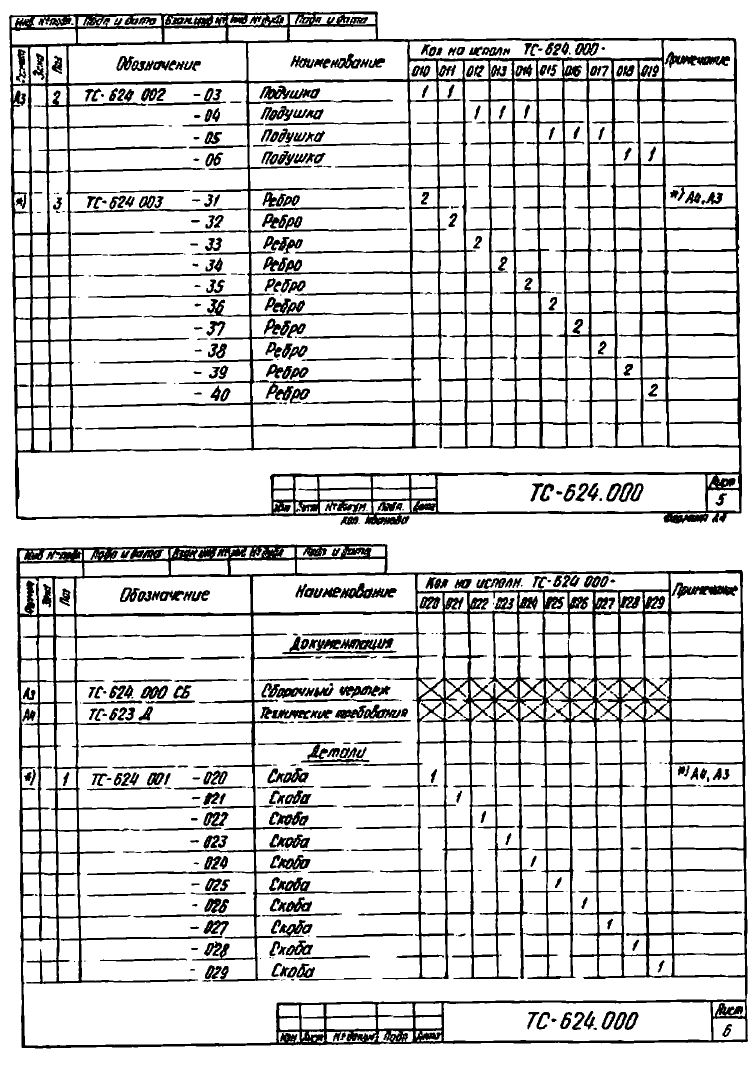 Инв. № подл. Подп и дата Взам.инв № Инв № дубл Подп и дата
Формат Зона Поз Обозначение Наименование Кол на исполн ТС-624.000- Примечание
010 011 012 013 014 015 016 017 018 019
А3 2 ТС-624 002 -03 Подушка 1 1
-04 Подушка 1 1 1
-05 Подушка 1 1 1
-06 Подушка 1 1
*) 3 ТС-624 003 -31 Ребро 2 *) А4, А3
-32 Ребро 2
-33 Ребро 2
-34 Ребро 2
-35 Ребро 2
-36 Ребро 2
-37 Ребро 2
-38 Ребро 2
-39 Ребро 2
-40 Ребро 2
ТС-624.000 Лист
5
Изм Лист № докум. Подп. Дата
Коп. Иванова Формат А4
Инв № подл Подп и дата Взам инв № Инв. № дубл Подп и дата
Формат Зона Поз Обозначение Наименование Кол на исполн. ТС-624 000- Примечание
020 021 022 023 024 025 026 027 028 029
Документация
А3 ТС-624. 000 СБ Сборочный чертеж
А4 ТС-623 Д Технические требования
Детали
*) 1 ТС-624 001 -020 Скоба 1 *) А4, А3
-021 Скоба 1
-022 Скоба 1
-023 Скоба 1
-024 Скоба 1
-025 Скоба 1
-026 Скоба 1
-027 Скоба 1
-028 Скоба 1
-029 Скоба 1
ТС-624.000 Лист
6
Изм Лист № докум Подп Дата